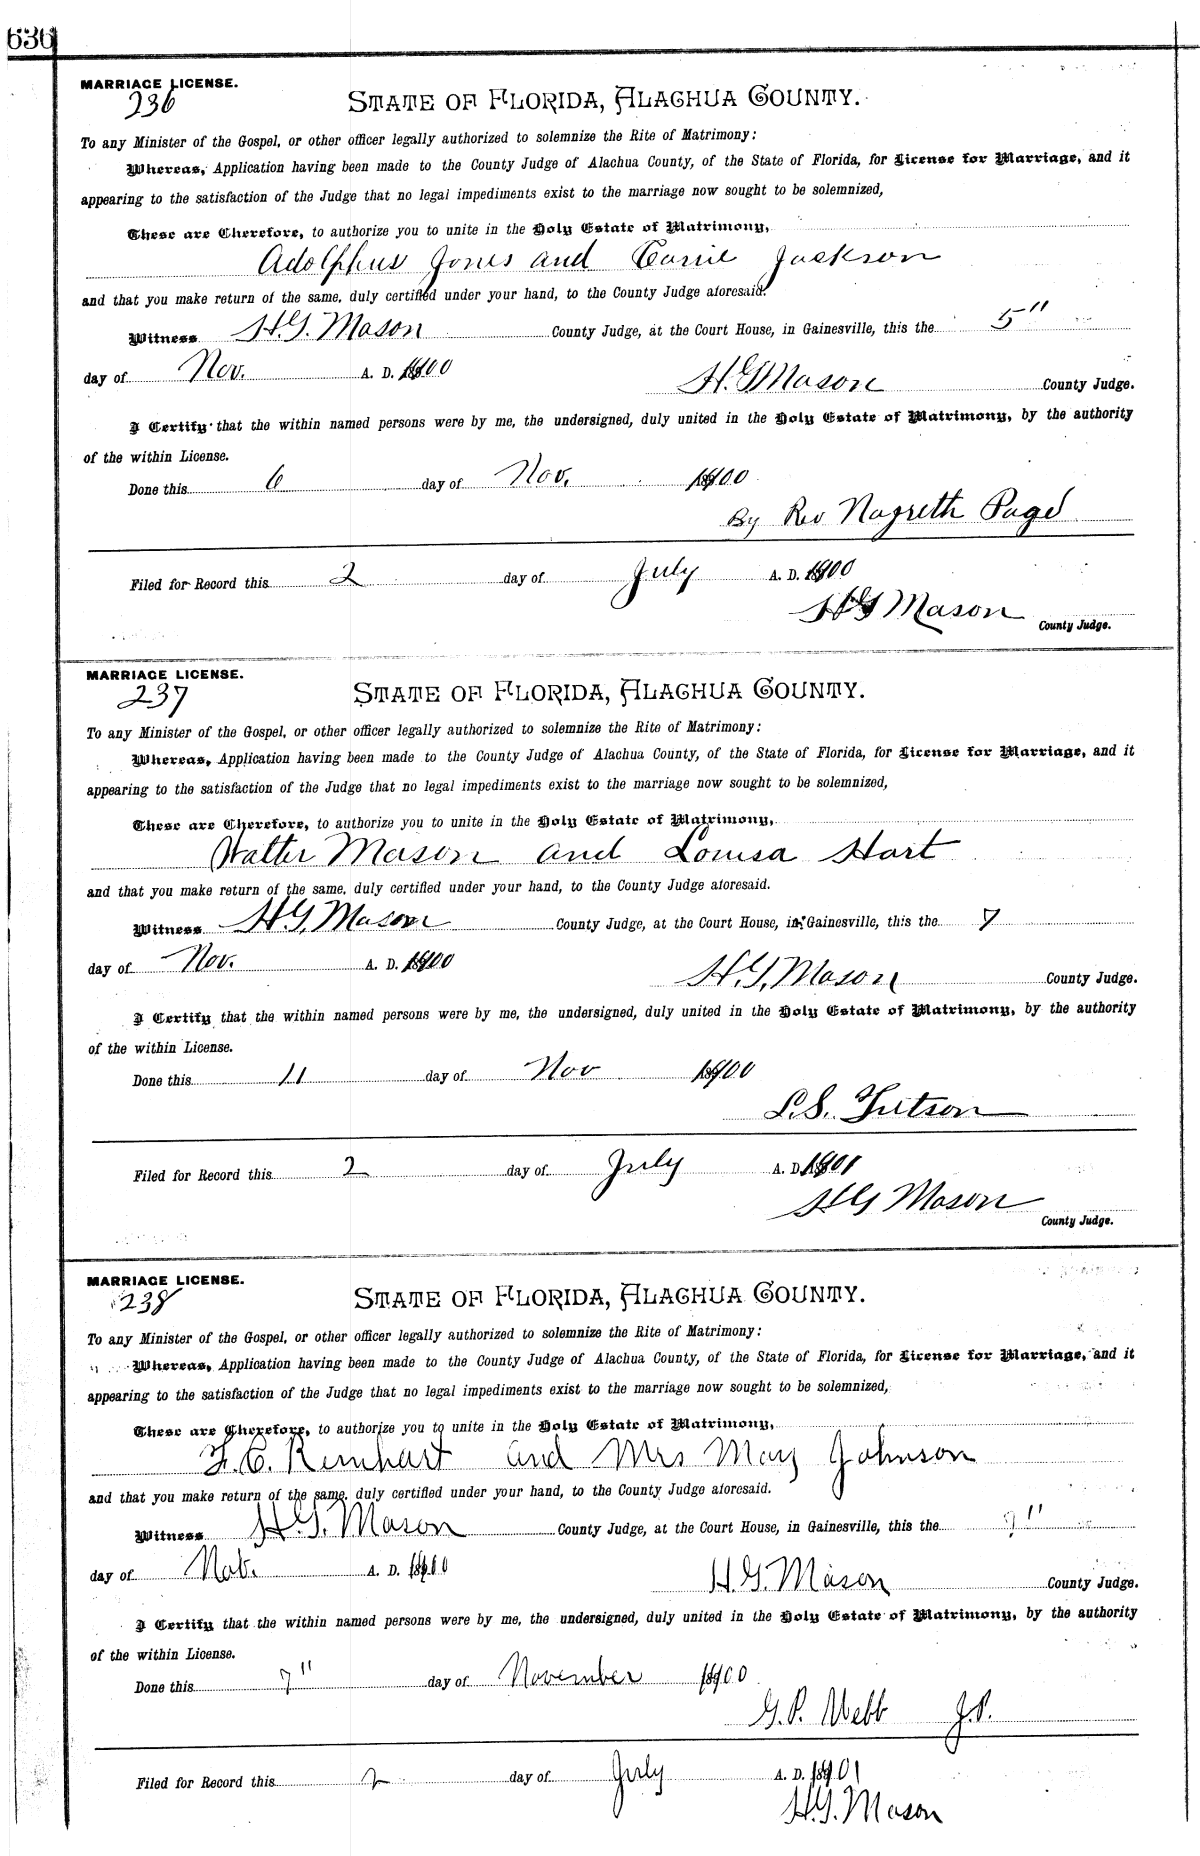 636
MARRIAGE LICENSE.
236
STATE OF FLORIDA, ALACHUA COUNTY.
To any Minister of the Gospel, or other officer legally authorized to solemnize the Rite of Matrimony:
Whereas, Application having been made to the County Judge of Alachua County, of the State of Florida, for License for Marriage, and it
appearing to the satisfaction of the Judge that no legal impediments exist to the marriage now sought to be solemnized,
These are Therefore, to authorize you to unite in the Holy Estate of Matrimony,
Adolphus Jones and Carrie Jackson
and that you make return of the same, duly certified under your hand, to the County Judge aforesaid.
Witness H.G. Mason County Judge, at the Court House, in Gainesville, this the 5"
day of Nov. A. D. 1900
H.G. Mason County Judge.
I Certify that the within named persons were by me, the undersigned, duly united in the Holy Estate of Matrimony, by the authority
of the within License.
Done this 6 day of Nov. 1900
By Rev Page
Filed for Record this 2 day of July A. D. 1900
H G Mason
County Judge.
MARRIAGE LICENSE.
237
STATE OF FLORIDA, ALACHUA COUNTY.
To any Minister of the Gospel, or other officer legally authorized to solemnize the Rite of Matrimony:
Whereas, Application having been made to the County Judge of Alachua County, of the State of Florida, for License for Marriage, and it
appearing to the satisfaction of the Judge that no legal impediments exist to the marriage now sought to be solemnized,
These are Therefore, to authorize you to unite in the Holy Estate of Matrimony,
Walter Mason and Louisa Hart
and that you make return of the same, duly certified under your hand, to the County Judge aforesaid.
Witness H.G. Mason County Judge, at the Court House, in Gainesville, this the 7
day of Nov. A. D. 1900
H.G. Mason County Judge.
I Certify that the within named persons were by me, the undersigned, duly united in the Holy Estate of Matrimony, by the authority
of the within License.
Done this 11 day of Nov 1900
L.S. Tutson
Filed for Record this 2 day of July A. D. 1901
H G Mason
County Judge.
MARRIAGE LICENSE.
238
STATE OF FLORIDA, ALACHUA COUNTY.
To any Minister of the Gospel, or other officer legally authorized to solemnize the Rite of Matrimony:
Whereas, Application having been made to the County Judge of Alachua County, of the State of Florida, for License for Marriage, and it
appearing to the satisfaction of the Judge that no legal impediments exist to the marriage now sought to be solemnized,
These are Therefore, to authorize you to unite in the Holy Estate of Matrimony,
F. C. Rinehart and Mrs May Johnson
and that you make return of the same, duly certified under your hand, to the County Judge aforesaid.
Witness H.G. Mason County Judge, at the Court House, in Gainesville, this the 7"
day of Nov. A. D. 1900
H.G. Mason County Judge.
I Certify that the within named persons were by me, the undersigned, duly united in the Holy Estate of Matrimony, by the authority
of the within License.
Done this 7" day of November 1900
G.P. Webb J.P.
Filed for Record this 2 day of July A. D. 1901
H.G. Mason